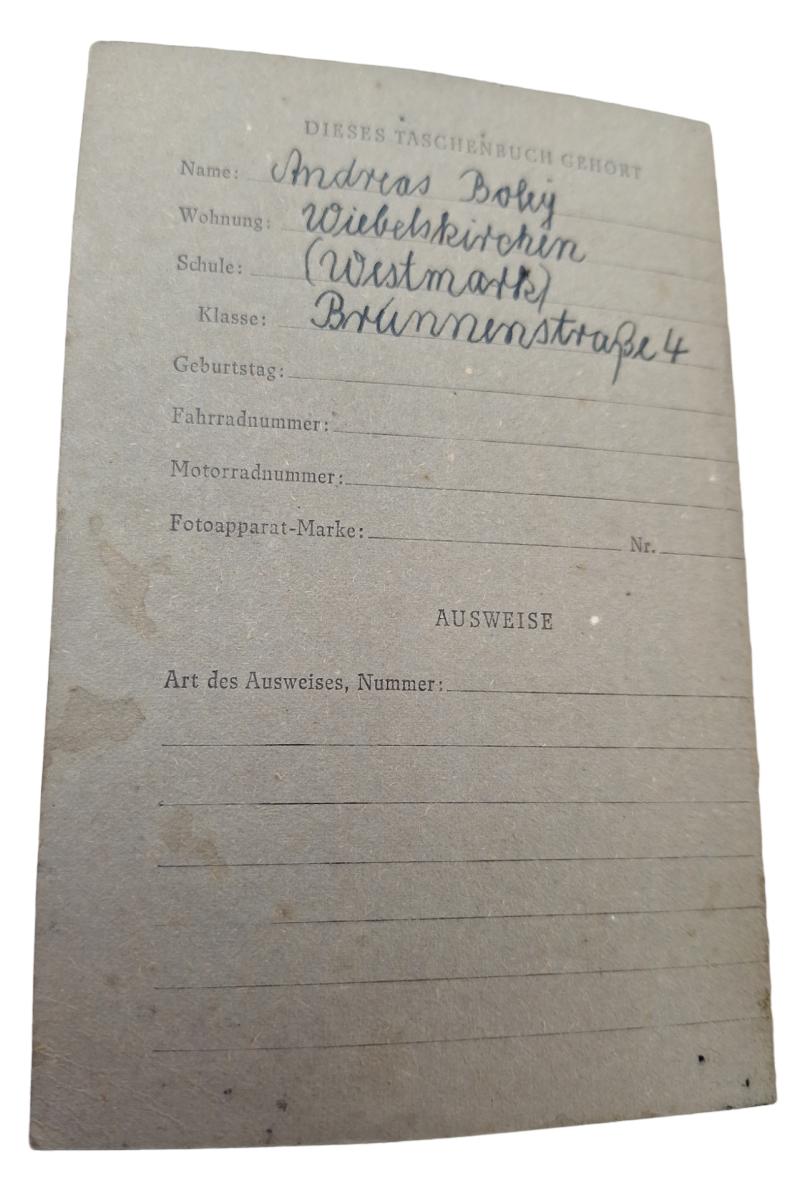 DIESES TASCHENBUCH GEHÖRT
Name: Andreas Boley
Wohnung: Wiebelskirchen
Schule: (Westmark)
Klasse: Brunnenstraße 4
Geburtstag:
Fahrradnummer:
Motorradnummer:
Fotoapparat-Marke: Nr.
AUSWEISE
Art des Ausweises, Nummer: